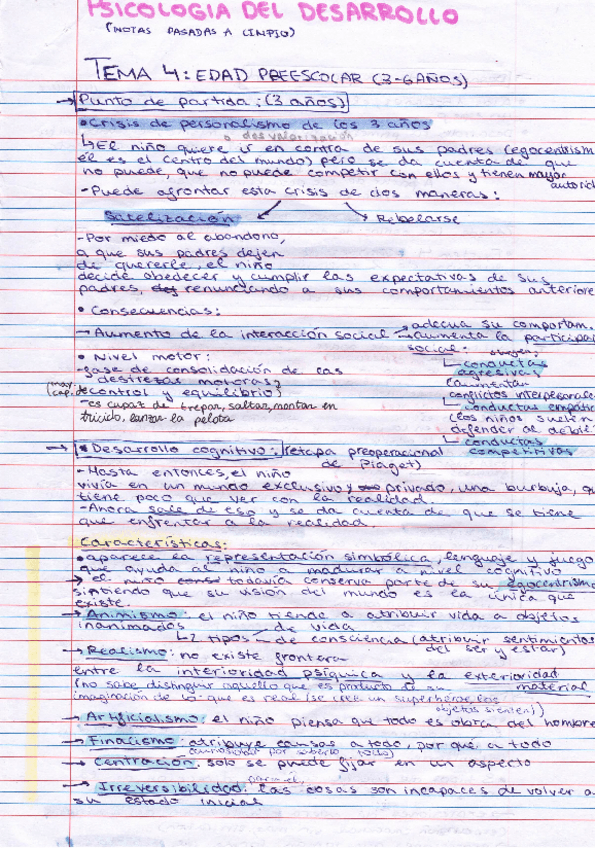 PSICOLOGIA DEL DESARROLLO
(NOTAS PASADAS A LIMPIO)
TEMA 4: EDAD PREESCOLAR (3-6 AÑOS)
→ Punto de partida: (3 años)
• Crisis de personalismo de los 3 años
o desvalorización
↳ El niño quiere ir en contra de sus padres (egocentrism
él es el centro del mundo) pero se da cuenta de que
no puede, que no puede competir con ellos y tienen mayor
autorid
- Puede afrontar esta crisis de dos maneras:
Satelización Rebelarse
- Por miedo al abandono,
a que sus padres dejen
de quererle, el niño
decide obedecer y cumplir las expectativas de sus
padres, renunciando a sus comportamientos anteriore
• Consecuencias:
→ Aumento de la interacción social → adecua su comportam.
→ aumenta la participac
social:
• Nivel motor:
- fase de consolidación de las
destrezas motoras
(may. cap. de control y equilibrio)
- es capaz de trepar, saltar, montar en
triciclo, lanzar la pelota
↳ conductas
agresivas
(aumentan
conflictos interpersonale
↳ conductas empátic
(los niños suelen
defender al débil
↳ conductas
competitivas
→ • Desarrollo cognitivo: (etapa preoperacional
de Piaget)
- Hasta entonces, el niño
vivía en un mundo exclusivo y privado, una burbuja, qu
tiene poco que ver con la realidad.
- Ahora sale de eso y se da cuenta de que se tiene
que enfrentar a la realidad.
Características:
• aparece la representación simbólica, lenguaje y juego
que ayuda al niño a madurar a nivel cognitivo
→ el niño todavía conserva parte de su egocentrismo
sintiendo que su visión del mundo es la única que
existe.
→ Animismo: el niño tiende a atribuir vida a objetos
inanimados
↳ 2 tipos de vida
de consciencia (atribuir sentimientos
del ser y estar)
→ Realismo: no existe frontera
entre la interioridad psíquica y la exterioridad
material
(no sabe distinguir aquello que es producto de su
imaginación de lo que es real (se cree un superhéroe, los
objetos sienten)
→ Artificialismo: el niño piensa que todo es obra del hombre
→ Finalismo: atribuye causas a todo, por qué a todo
(curiosidad por saberlo todo)
→ Centración: solo se puede fijar en un aspecto
para él
→ Irreversibilidad: las cosas son incapaces de volver a
su estado inicial